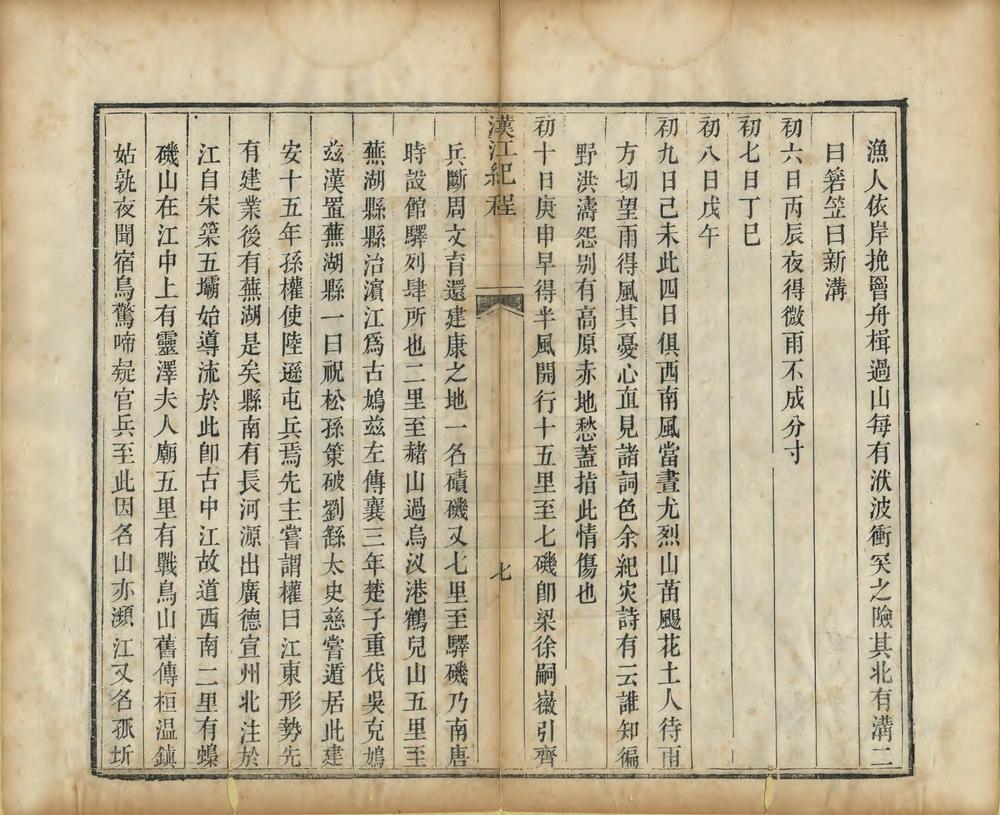 漁人依岸挽罾舟楫過山每有洑波衝突之險其北有溝二
曰箬笠曰新溝
初六日丙辰夜得微雨不成分寸
初七日丁巳
初八日戊午
初九日己未此四日俱西南風當晝尤烈山苗颺花土人待雨
方切望雨得風其憂心直見諸詞色余紀灾詩有云誰知徧
野洪濤怨别有高原赤地愁蓋指此情傷也
初十日庚申早得半風開行十五里至七磯卽梁徐嗣徽引齊
漢江紀程
七
兵斷周文育還建康之地一名磧磯又七里至驛磯乃南唐
時設館驛列肆所也二里至赭山過烏汊港鶴兒山五里至
蕪湖縣縣治濵江爲古鳩兹左傳襄三年楚子重伐吳克鳩
兹漢置蕪湖縣一曰祝松孫策破劉繇太史慈嘗遁居此建
安十五年孫權使陸遜屯兵焉先主嘗謂權曰江東形勢先
有建業後有蕪湖是矣縣南有長河源出廣德宣州北注於
江自宋築五壩始導流於此卽古中江故道西南二里有蟂
磯山在江中上有靈澤夫人廟五里有戰鳥山舊傳桓温鎭
姑孰夜聞宿鳥驚啼疑官兵至此因名山亦瀕江又名孤圻